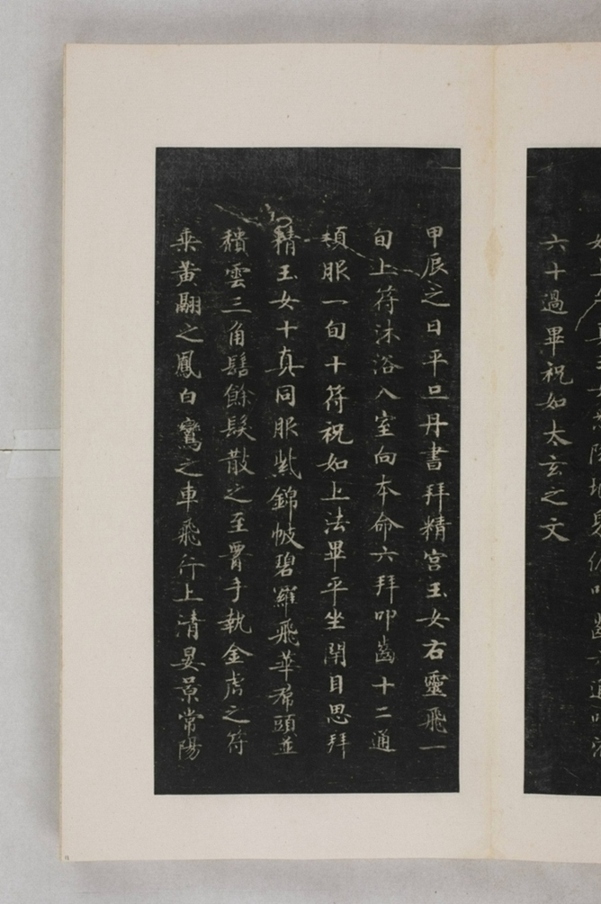 六十過畢祝如太玄之文
甲辰之日平旦丹書拜精宮玉女右靈飛一
旬上符沐浴入室向本命六拜叩齒十二通
頓服一旬十符祝如上法畢平坐閇目思拜
精玉女十真同服紫錦帔碧羅飛華帬頭並
穨雲三角髻餘髮散之至手執金虎之符
乘黃翮之鳳白鸞之車飛行上清晏景常陽